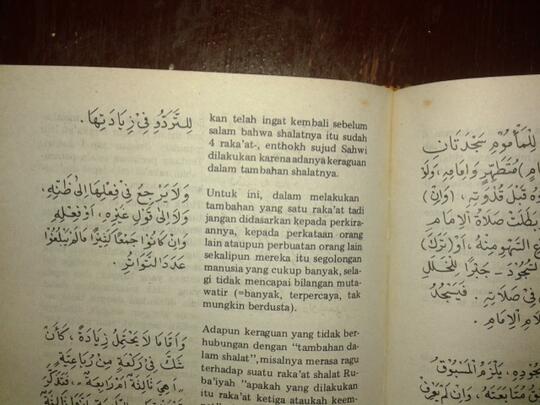 لِلتَّرَدُّدِ فِيْ زِيَادَتِهَا.
وَلَا يَرْجِعُ فِيْ فِعْلِهَا اِلَى ظَنِّهِ،
وَلَا اِلَى قَوْلِ غَيْرِهِ، اَوْ فِعْلِهِ
وَاِنْ كَانُوْا جَمْعًا كَثِيْرًا مَالَمْ يَبْلُغُوْا
عَدَدَ التَّوَاتُرِ.
وَاَمَّا مَا لَا يَحْتَمِلُ زِيَادَةً، كَأَنْ
شَكَّ فِيْ رَكْعَةٍ مِنْ رُبَاعِيَّةٍ
اَهِيَ ثَالِثَةٌ اَمْ رَابِعَةٌ، فَتَذَكَّرَ
kan telah ingat kembali sebelum
salam bahwa shalatnya itu sudah
4 raka'at-, enthokh sujud Sahwi
dilakukan karena adanya keraguan
dalam tambahan shalatnya.
Untuk ini, dalam melakukan
tambahan yang satu raka'at tadi
jangan didasarkan kepada perkira-
annya, kepada perkataan orang
lain ataupun perbuatan orang lain
sekalipun mereka itu segolongan
manusia yang cukup banyak, sela-
gi tidak mencapai bilangan muta-
watir (=banyak, terpercaya, tak
mungkin berdusta).
Adapun keraguan yang tidak ber-
hubungan dengan "tambahan da-
lam shalat", misalnya merasa ragu
terhadap suatu raka'at shalat Ru-
ba'iyah "apakah yang dilakukan
itu raka'at ketiga ataukah keem-
لِلْمَأْمُوْمِ سَجْدَتَانِ
مُتَطَهِّرٍ وَاِمَامِهِ، وَلَوْ
قَبْلَ قُدْوَتِهِ، (وَاِنْ)
بَطَلَتْ صَلَاةُ الْاِمَامِ
السَّهْوِ مِنْهُ، اَوْ (تَرَكَ)
السُّجُوْدَ - جَبْرًا لِلْخَلَلِ
فِيْ صَلَاتِهِ. فَيَسْجُدُ
الْاِمَامِ.
يَلْزَمُ الْمَسْبُوْقَ
مُتَابَعَتُهُ، وَاِنْ لَمْ يَعْرِفْ